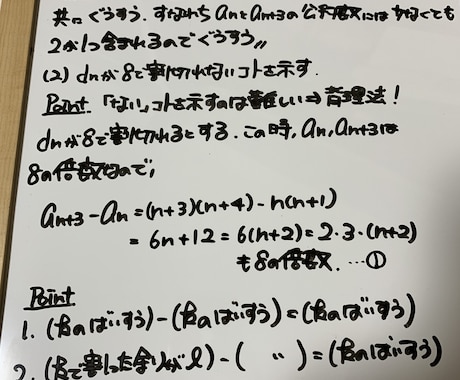 共に ぐうすう. すなわち anとan+3の 公約数には 少なくとも
2が1つ含まれるのでぐうすう〃
(2) dnが8で割り切れないコトを示す.
Point 「ない」コトを示すのは難しい⇒背理法!
dnが8で割り切れるとする. この時, an, an+3は
8の倍数なので,
an+3 - an = (n+3)(n+4) - n(n+1)
= 6n+12 = 6(n+2) = 2・3・(n+2)
も8の倍数. …①
Point
1. (kのばいすう)-(kのばいすう)=(kのばいすう)
2. (kで割った余りがl)-( 〃 )=(kのばいすう)